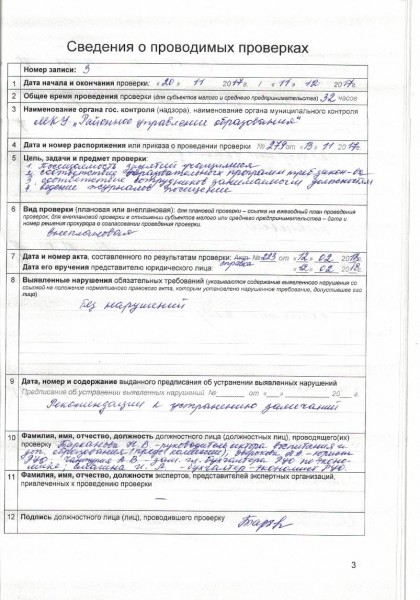 Сведения о проводимых проверках
Номер записи: 3
1 Дата начала и окончания проверки: «20» 11 2017г. / «11» 12 2017г.
2 Общее время проведения проверки (для субъектов малого и среднего предпринимательства) 32 часов
3 Наименование органа гос. контроля (надзора), наименование органа муниципального контроля
МКУ „Районное управление образования“
4 Дата и номер распоряжения или приказа о проведении проверки № 279 от «13» 11 2017г.
5 Цель, задачи и предмет проверки:
1. Посещаемость занятий учащимися
2. соответствие образовательных программ треб. закон-ва
3. соответствие сотрудников занимаемой должности
ведение журналов посещения
6 Вид проверки (плановая или внеплановая): для плановой проверки – ссылка на ежегодный план проведения
проверок; для внеплановой проверки в отношении субъектов малого или среднего предпринимательства – дата и
номер решения прокурора о согласовании проведения проверки.
внеплановая
7 Дата и номер акта, составленного по результатам проверки: Акт № 223 от «12» 02 2018г.
справка
Дата его вручения представителю юридического лица: «12» 02 2018г.
8 Выявленные нарушения обязательных требований (указываются содержание выявленного нарушения со
ссылкой на положение нормативного правового акта, которым установлено нарушенное требование, допустившее его
лицо)
Без нарушений
9 Дата, номер и содержание выданного предписания об устранении выявленных нарушений
Предписание об устранении выявленных нарушений № от «__» 20__ г.
Рекомендации к устранению замечаний
10 Фамилия, имя, отчество, должность должностного лица (должностных лиц), проводящего(их)
проверку Н.В. - руководитель сектора воспитания и
доп. образования (пред. комиссии), - юрист
РУО, А.В. - зам. гл. бухгалтера РУО по эконо-
мике, - бухгалтер-экономист РУО.
11 Фамилия, имя, отчество, должности экспертов, представителей экспертных организаций,
привлеченных к проведению проверки
—
12 Подпись должностного лица (лиц), проводившего проверку
3